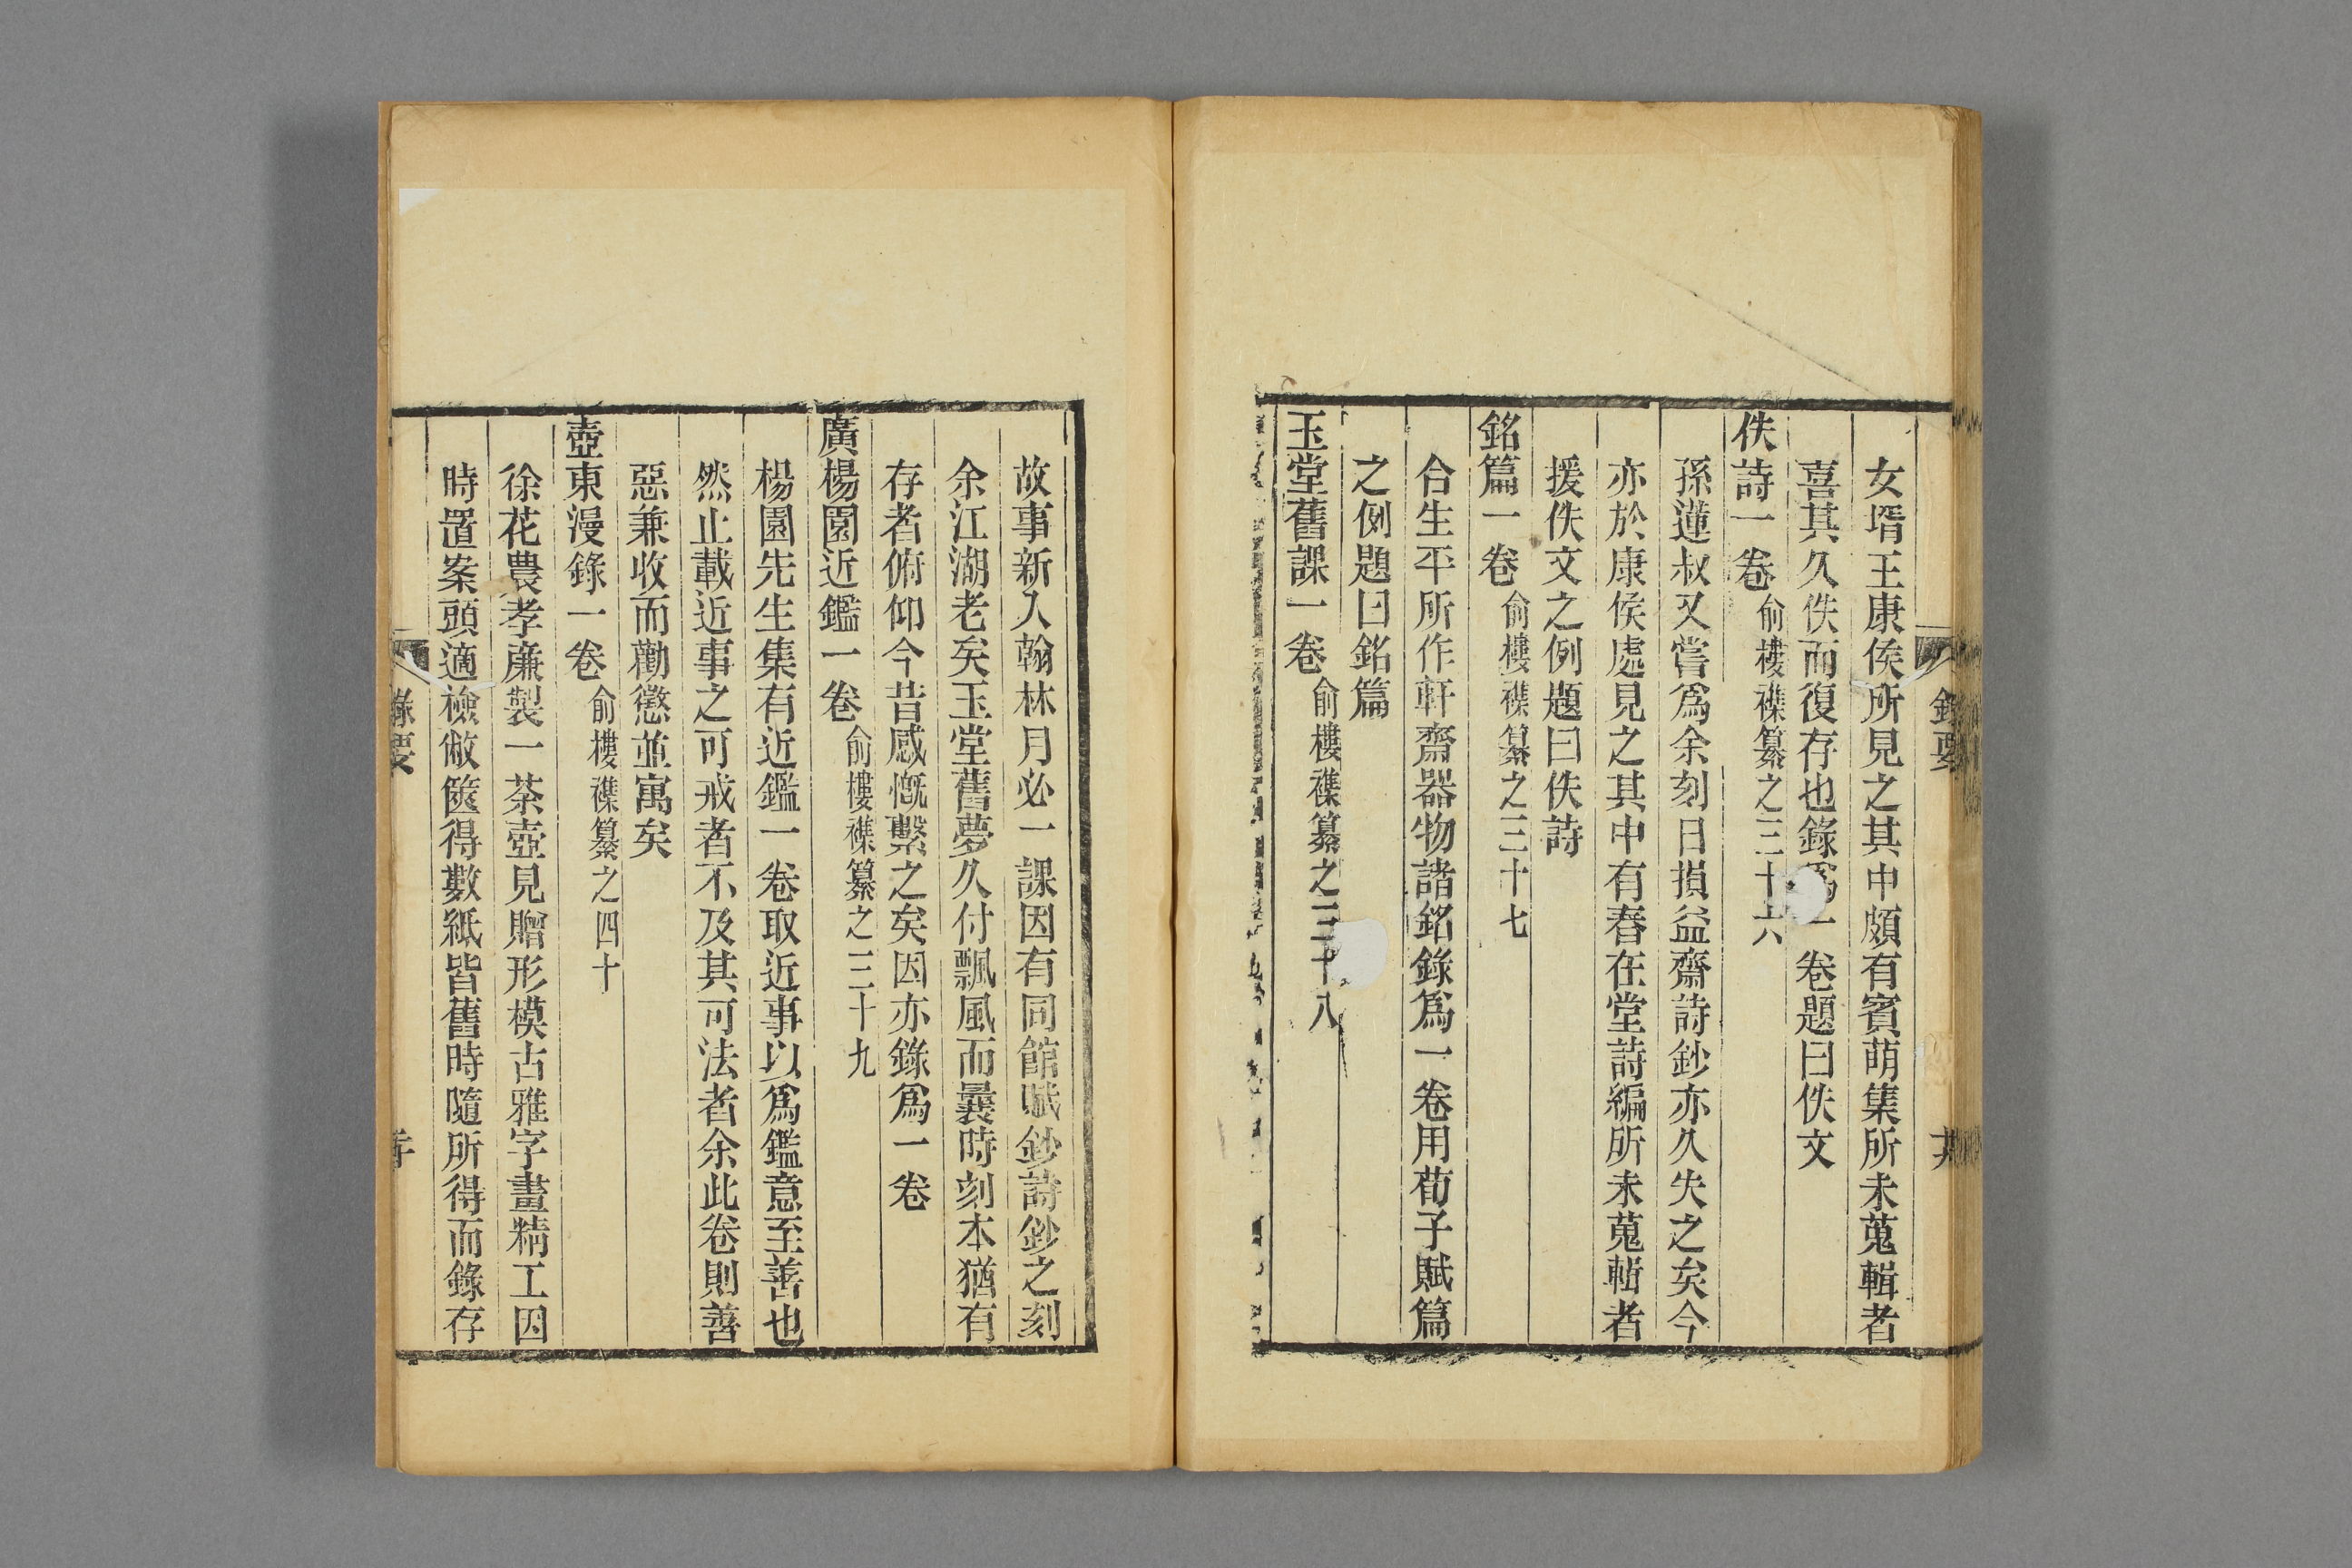 女壻王康侯所見之其中頗有賓萌集所未蒐輯者
喜其久佚而復存也錄爲一卷題曰佚文
佚詩一卷俞樓襍纂之三十六
孫蓮叔又嘗爲余刻日損益齋詩鈔亦久失之矣今
亦於康侯處見之其中有春在堂詩編所未蒐輯者
援佚文之例題曰佚詩
銘篇一卷俞樓襍纂之三十七
合生平所作軒齋器物諸銘錄爲一卷用荀子賦篇
之例題曰銘篇
玉堂舊課一卷俞樓襍纂之三十八
故事新入翰林月必一課因有同館賦鈔詩鈔之刻
余江湖老矣玉堂舊夢久付飄風而曩時刻本猶有
存者俯仰今昔感慨繫之矣因亦錄爲一卷
廣楊園近鑑一卷俞樓襍纂之三十九
楊園先生集有近鑑一卷取近事以爲鑑意至善也
然止載近事之可戒者不及其可法者余此卷則善
惡兼收而勸懲並寓矣
壺東漫錄一卷俞樓襍纂之四十
徐花農孝廉製一茶壺見贈形模古雅字畫精工因
時置案頭適檢敝篋得數紙皆舊時隨所得而錄存
錄要